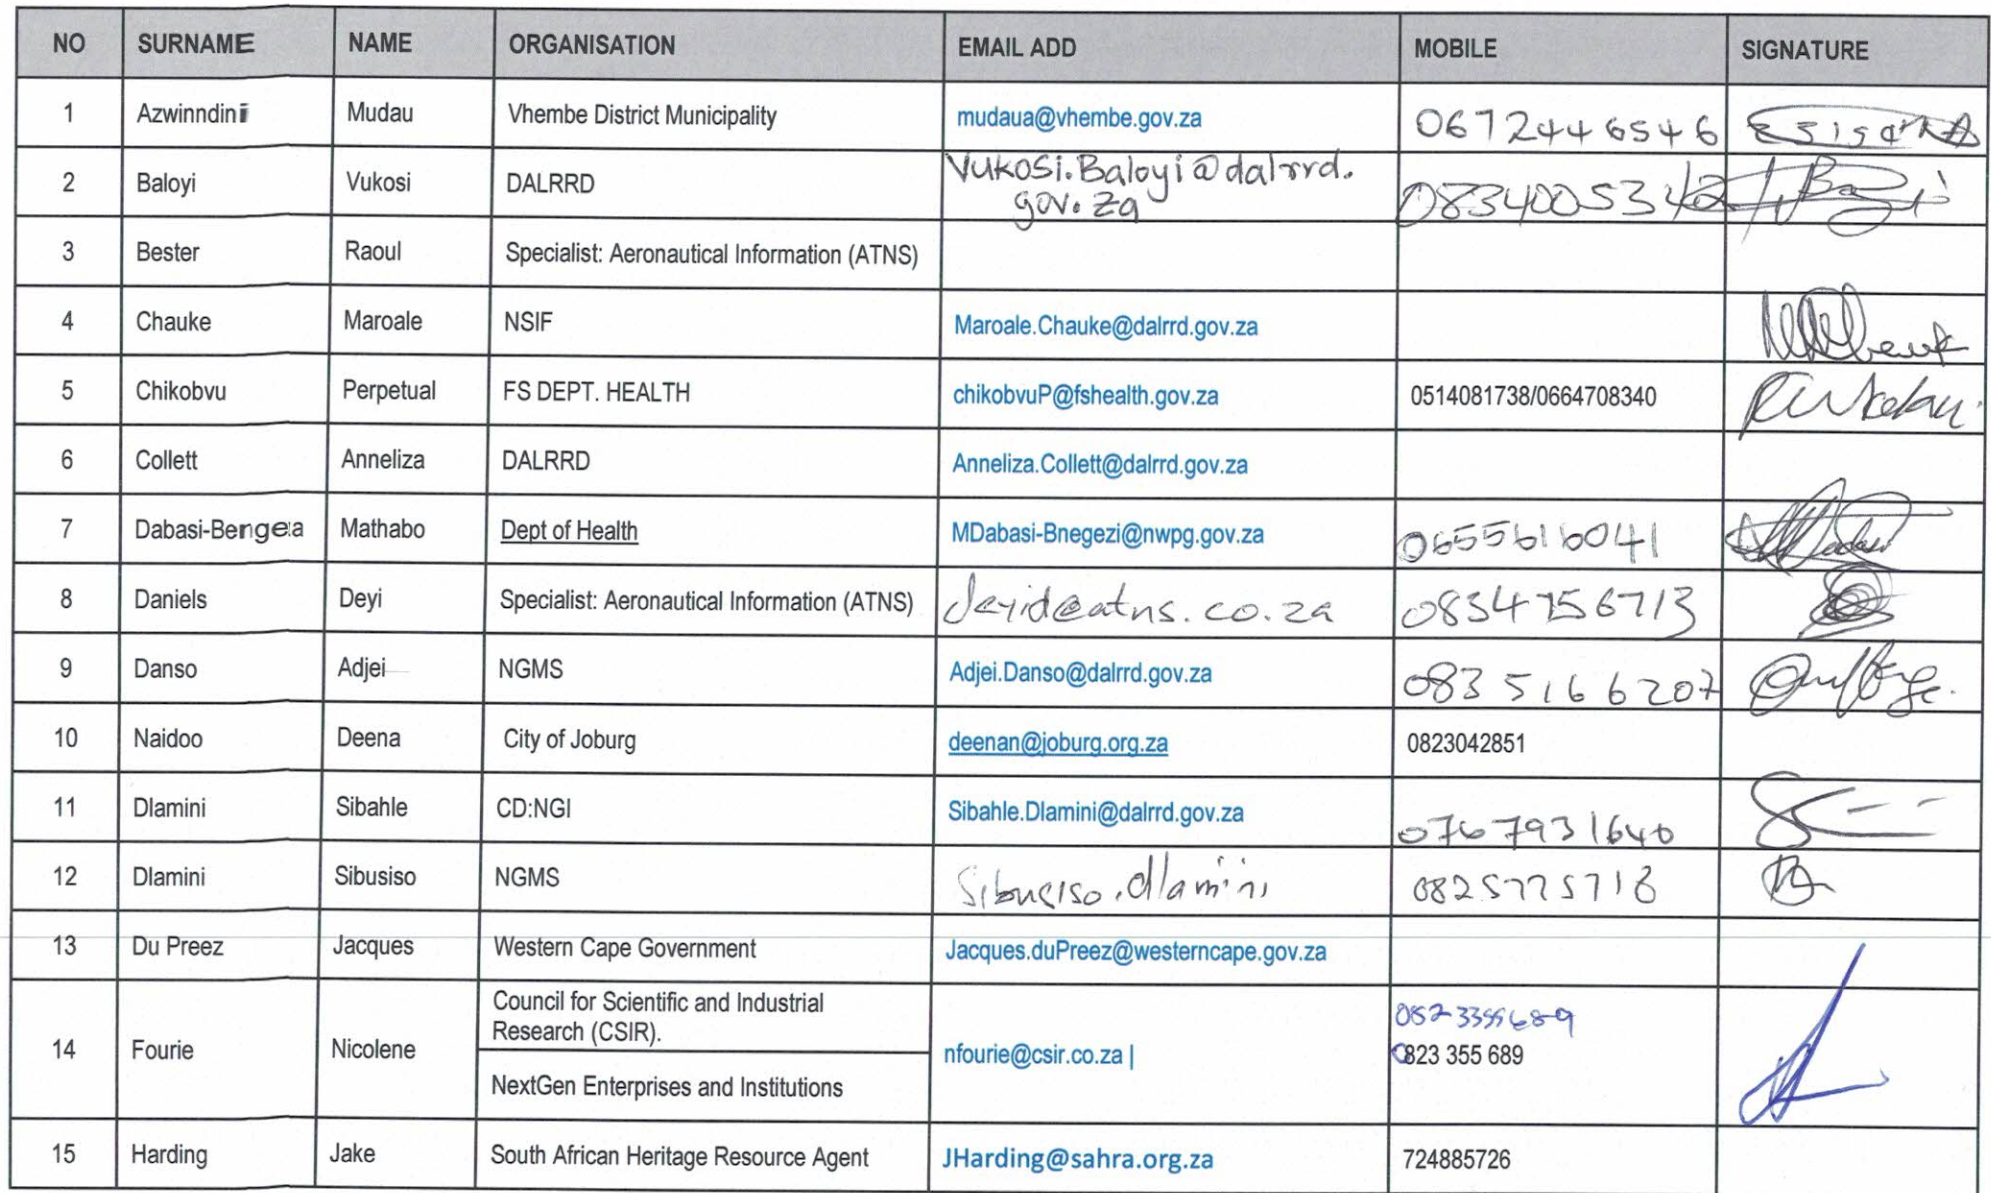 NO SURNAME NAME ORGANISATION EMAIL ADD MOBILE SIGNATURE
1 Azwinndini Mudau Vhembe District Municipality mudaua@vhembe.gov.za 0672446546
2 Baloyi Vukosi DALRRD Vukosi.Baloyi@dalrrd.
gov.za 0834005342
3 Bester Raoul Specialist: Aeronautical Information (ATNS)
4 Chauke Maroale NSIF Maroale.Chauke@dalrrd.gov.za
5 Chikobvu Perpetual FS DEPT. HEALTH chikobvuP@fshealth.gov.za 0514081738/0664708340
6 Collett Anneliza DALRRD Anneliza.Collett@dalrrd.gov.za
7 Mathabo Dept of Health MDabasi-Bnegezi@nwpg.gov.za 0655616041
8 Daniels Deyi Specialist: Aeronautical Information (ATNS) deyid@atns.co.za 0834756713
9 Danso Adjei NGMS Adjei.Danso@dalrrd.gov.za 083 5166207
10 Naidoo Deena City of Joburg deenan@joburg.org.za 0823042851
11 Dlamini Sibahle CD:NGI Sibahle.Dlamini@dalrrd.gov.za 0767931640
12 Dlamini Sibusiso NGMS Sibusiso.dlamini 0825775718
13 Du Preez Jacques Western Cape Government Jacques.duPreez@westerncape.gov.za
Council for Scientific and Industrial
Research (CSIR). 0823355689
14 Fourie Nicolene nfourie@csir.co.za | 0823 355 689
NextGen Enterprises and Institutions
15 Harding Jake South African Heritage Resource Agent JHarding@sahra.org.za 724885726